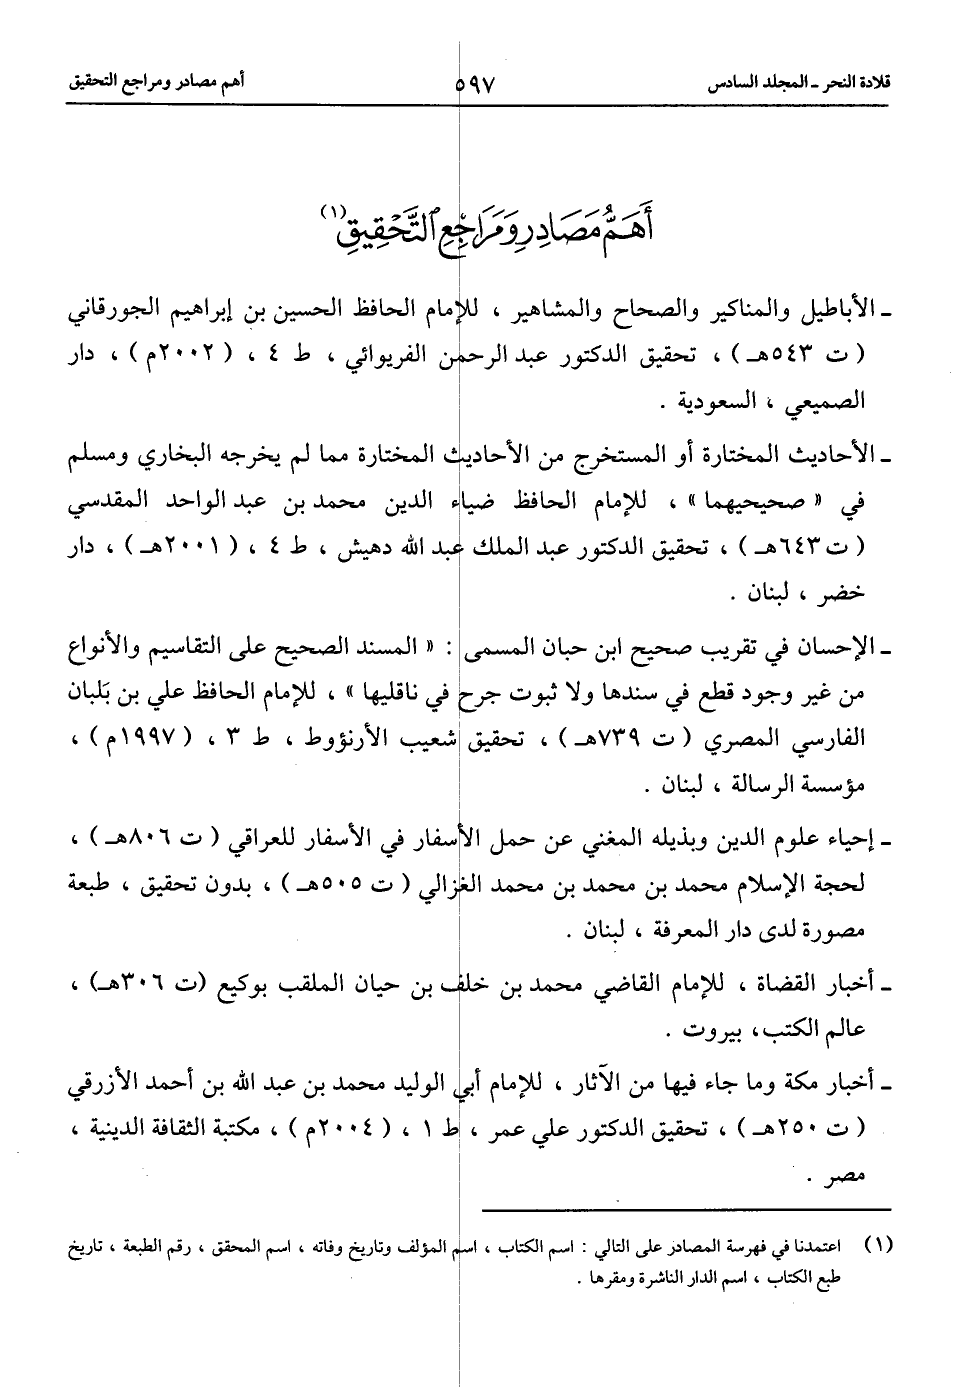 قلادة النحر ـ المجلد السادس ٥٩٧ أهم مصادر ومراجع التحقيق
أَهَمُّ مَصَادِرِ وَمَرَاجِعِ التَّحْقِيقِ(١)
ـ الأباطيل والمناكير والصحاح والمشاهير ، للإمام الحافظ الحسين بن إبراهيم الجورقاني
( ت ٥٤٣هـ ) ، تحقيق الدكتور عبد الرحمن الفريوائي ، ط ٤ ، ( ٢٠٠٢م ) ، دار
الصميعي ، السعودية .
ـ الأحاديث المختارة أو المستخرج من الأحاديث المختارة مما لم يخرجه البخاري ومسلم
في « صحيحيهما » ، للإمام الحافظ ضياء الدين محمد بن عبد الواحد المقدسي
( ت ٦٤٣هـ ) ، تحقيق الدكتور عبد الملك عبد الله دهيش ، ط ٤ ، ( ٢٠٠١هـ ) ، دار
خضر ، لبنان .
ـ الإحسان في تقريب صحيح ابن حبان المسمى : « المسند الصحيح على التقاسيم والأنواع
من غير وجود قطع في سندها ولا ثبوت جرح في ناقليها » ، للإمام الحافظ علي بن بَلبان
الفارسي المصري ( ت ٧٣٩هـ ) ، تحقيق شعيب الأرنؤوط ، ط ٣ ، ( ١٩٩٧م ) ،
مؤسسة الرسالة ، لبنان .
ـ إحياء علوم الدين وبذيله المغني عن حمل الأسفار في الأسفار للعراقي ( ت ٨٠٦هـ ) ،
لحجة الإسلام محمد بن محمد بن محمد الغزالي ( ت ٥٠٥هـ ) ، بدون تحقيق ، طبعة
مصورة لدى دار المعرفة ، لبنان .
ـ أخبار القضاة ، للإمام القاضي محمد بن خلف بن حيان الملقب بوكيع (ت ٣٠٦هـ) ،
عالم الكتب، بيروت .
ـ أخبار مكة وما جاء فيها من الآثار ، للإمام أبي الوليد محمد بن عبد الله بن أحمد الأزرقي
( ت ٢٥٠هـ ) ، تحقيق الدكتور علي عمر ، ط ١ ، ( ٢٠٠٤م ) ، مكتبة الثقافة الدينية ،
مصر .
(١) اعتمدنا في فهرسة المصادر على التالي : اسم الكتاب ، اسم المؤلف وتاريخ وفاته ، اسم المحقق ، رقم الطبعة ، تاريخ
طبع الكتاب ، اسم الدار الناشرة ومقرها .